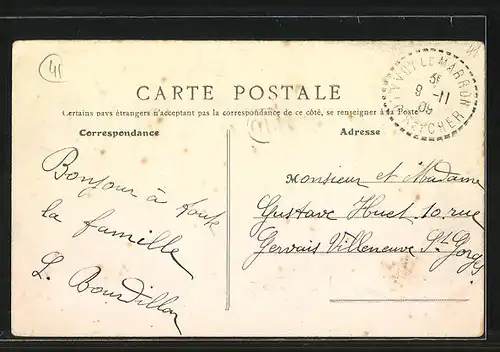 41
CARTE POSTALE
Certains pays étrangers n'acceptant pas la correspondance de ce côté, se renseigner à la Poste
Correspondance
Adresse
YVOY LE MARRON
9 -11
09
Bonjour à toute
la famille
L. Bourdillon
Monsieur et Madame
Gustave Huet 10, rue
Gervais Villeneuve St. Gorges